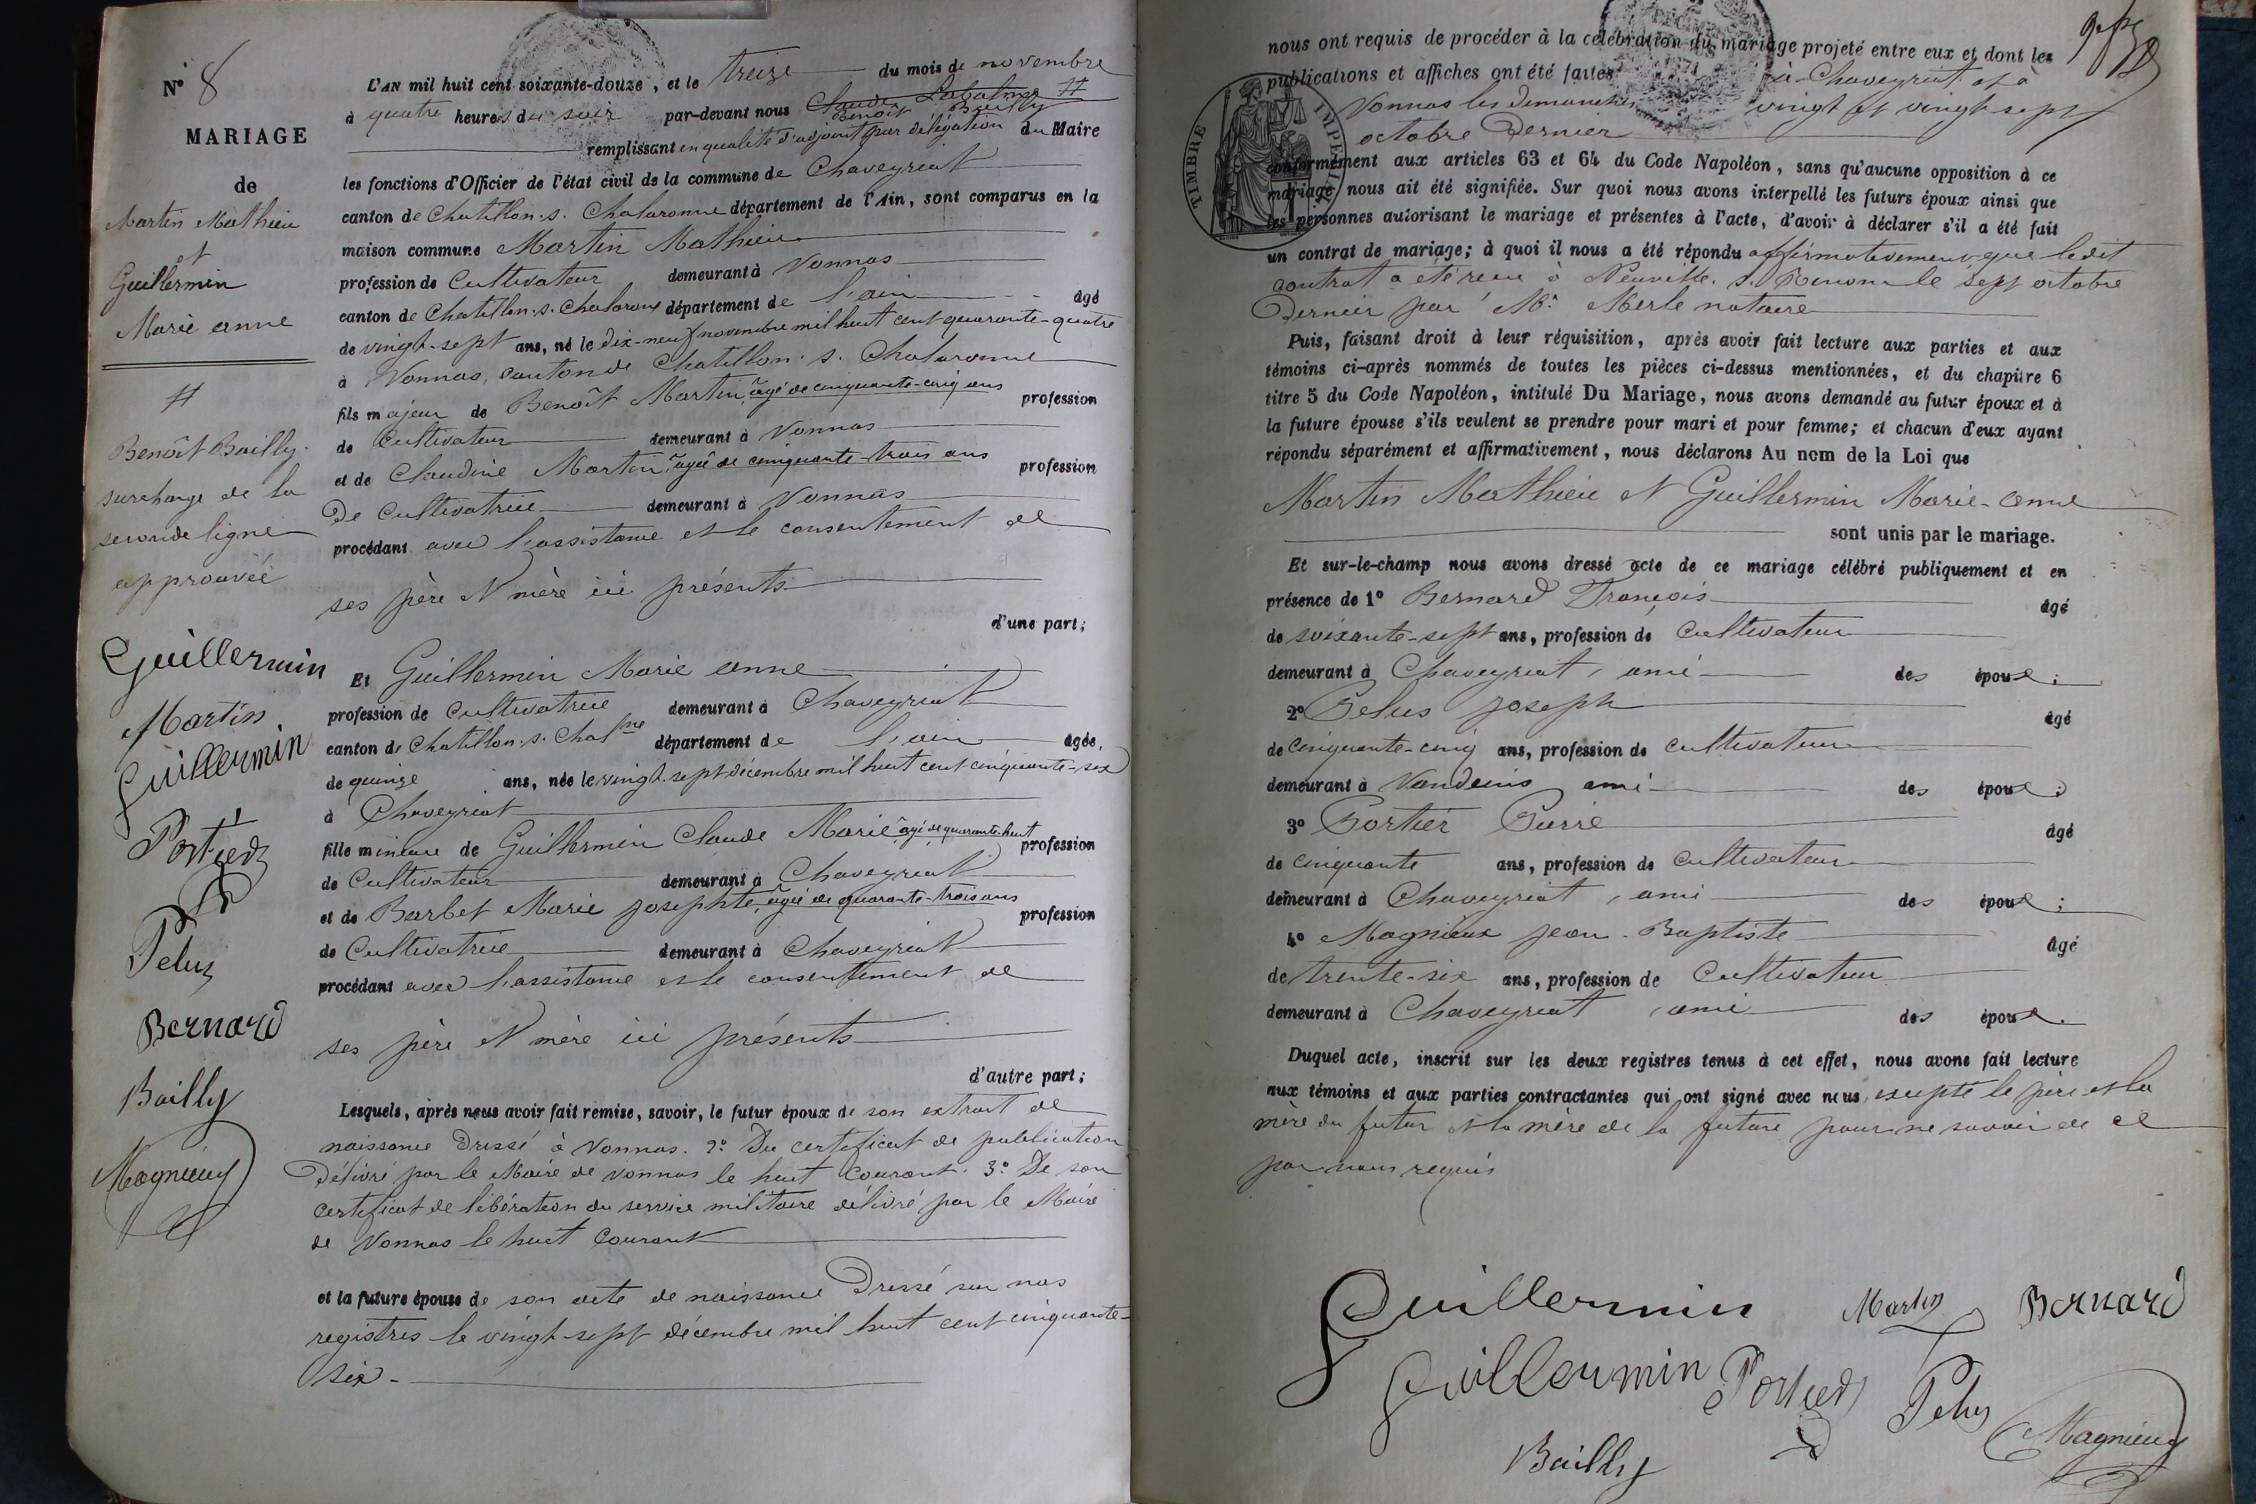 N° 8
MARIAGE
de
Martin Mathieu
et
Guillermin
Marie anne
#
Benoît Bailly.
surcharge de la
seconde ligne
approuvée
Guillermin
Martin
Guillermin
Portier
Pelus
Bernard
Bailly
Magnieux
L'AN mil huit cent soixante-douze, et le treize du mois de novembre
à quatre heures du soir par-devant nous Claude Labalme #
Benoît Bailly
remplissant en qualité d'adjoint par délégation du Maire
les fonctions d'Officier de l'état civil de la commune de Chaveyriat
canton de Chatillon-s. Chalaronne département de l'Ain, sont comparus en la
maison commune Martin Mathieu
profession de Cultivateur demeurant à Vonnas
canton de Chatillon-s. Chalaronne département de l'ain âgé
de vingt-sept ans, né le dix-neuf novembre mil huit cent quarante-quatre
à Vonnas, canton de Chatillon-s. Chalaronne
fils majeur de Benoît Martin, âgé de cinquante-cinq ans profession
de Cultivateur demeurant à Vonnas
et de Claudine Martin, agée de cinquante-trois ans profession
De Cultivatrice demeurant à Vonnas
procédant avec l'assistance et le consentement de
ses père et mère ici présents
d'une part;
Et Guillermin Marie anne
profession de Cultivatrice demeurant à Chaveyriat
canton de Chatillon-s. Chalne département de l'ain âgée,
de quinze ans, née le vingt-sept décembre mil huit cent cinquante-six
à Chaveyriat
fille mineure de Guillermin Claude Marie, âgé de quarante-huit profession
de Cultivateur demeurant à Chaveyriat
et de Barbet Marie josephte, âgée de quarante-trois ans profession
de Cultivatrice demeurant à Chaveyriat
procédant avec l'assistance et le consentement de
ses père et mère ici présents
d'autre part;
Lesquels, après nous avoir fait remise, savoir, le futur époux de son extrait de
naissance Dressé à Vonnas. 2° Du certificat de publication
Délivré par le Maire de Vonnas le huit Courant. 3° De son
certificat de libération du service militaire délivré par le Maire
de Vonnas le huit Courant
et la future épouse de son acte de naissance Dressé sur nos
registres le vingt-sept décembre mil huit cent cinquante-
six -
nous ont requis de procéder à la célébration du mariage projeté entre eux et dont les
publications et affiches ont été faites à Chaveyriat et à
Vonnas les dimanches vingt et vingt-sept
octobre Dernier
conformément aux articles 63 et 64 du Code Napoléon, sans qu'aucune opposition à ce
mariage nous ait été signifiée. Sur quoi nous avons interpellé les futurs époux ainsi que
les personnes autorisant le mariage et présentes à l'acte, d'avoir à déclarer s'il a été fait
un contrat de mariage; à quoi il nous a été répondu affirmativement, que ledit
contrat a été recu à Neuville. s. Renom le sept octobre
Dernier par Me Merle notaire
Puis, faisant droit à leur réquisition, après avoir fait lecture aux parties et aux
témoins ci-après nommés de toutes les pièces ci-dessus mentionnées, et du chapitre 6
titre 5 du Code Napoléon, intitulé Du Mariage, nous avons demandé au futur époux et à
la future épouse s'ils veulent se prendre pour mari et pour femme; et chacun d'eux ayant
répondu séparément et affirmativement, nous déclarons Au nom de la Loi que
Martin Mathieu et Guillermin Marie-anne
sont unis par le mariage.
Et sur-le-champ nous avons dressé acte de ce mariage célébré publiquement et en
présence de 1° Bernard François âgé
de soixante-sept ans, profession de Cultivateur
demeurant à Chaveyriat, ami des époux;
2° Pelus joseph âgé
de cinquante-cinq ans, profession de cultivateur
demeurant à Vandeins ami des époux;
3° Portier Pierre âgé
de cinquante ans, profession de cultivateur
demeurant à Chaveyriat, ami des époux;
4° Magnieux jean-Baptiste âgé
de trente-six ans, profession de Cultivateur
demeurant à Chaveyriat, ami des époux.
Duquel acte, inscrit sur les deux registres tenus à cet effet, nous avons fait lecture
aux témoins et aux parties contractantes qui ont signé avec nous, excepté le père et la
mère du futur et la mère de la future pour ne savoir de ce
par nous requis
Guillermin Martin Bernard
Guillermin Portier Pelus Magnieux
Bailly
TIMBRE IMPÉRIAL